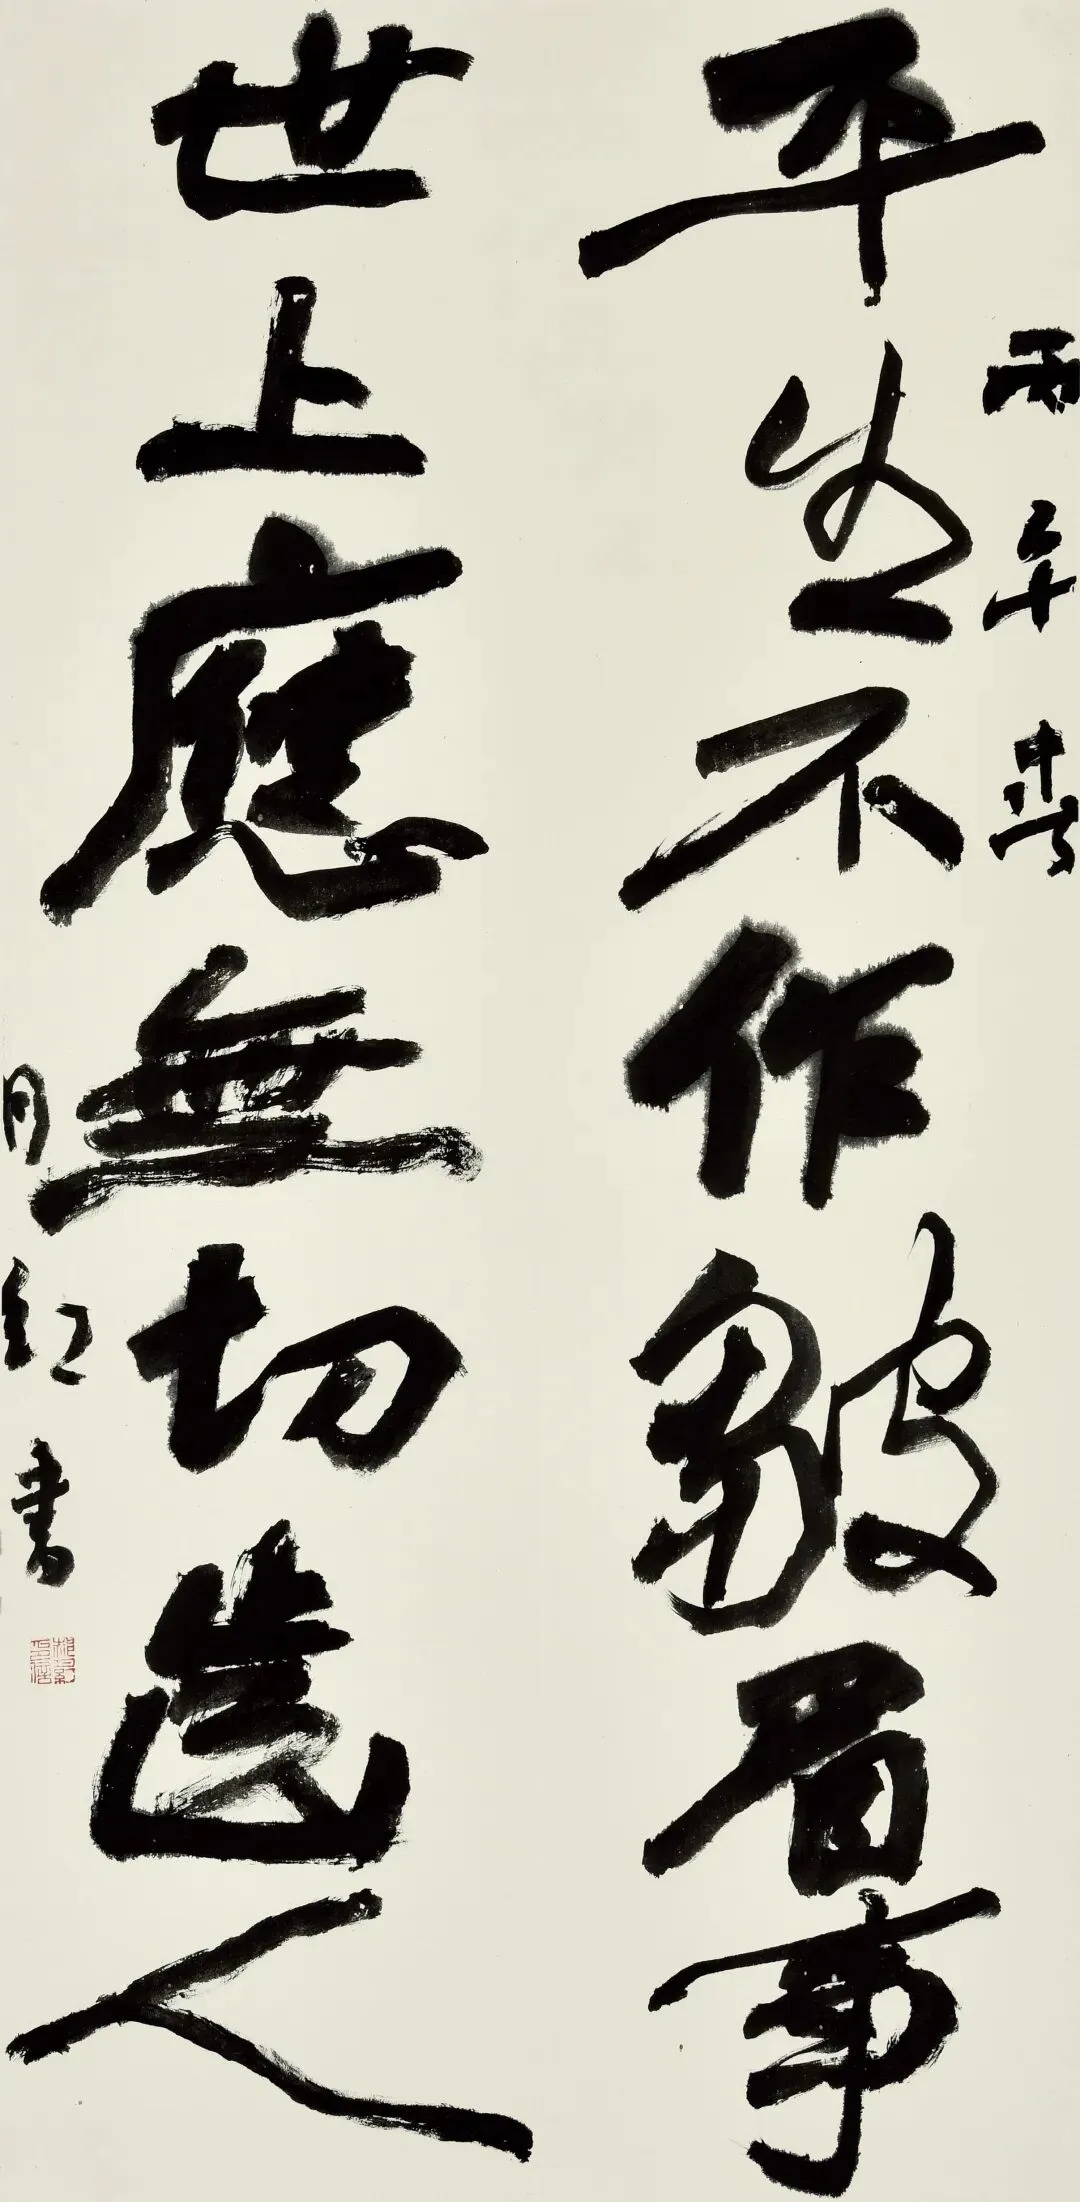 丙午春
平生不作皺眉事
世上應無切齒人
紅書